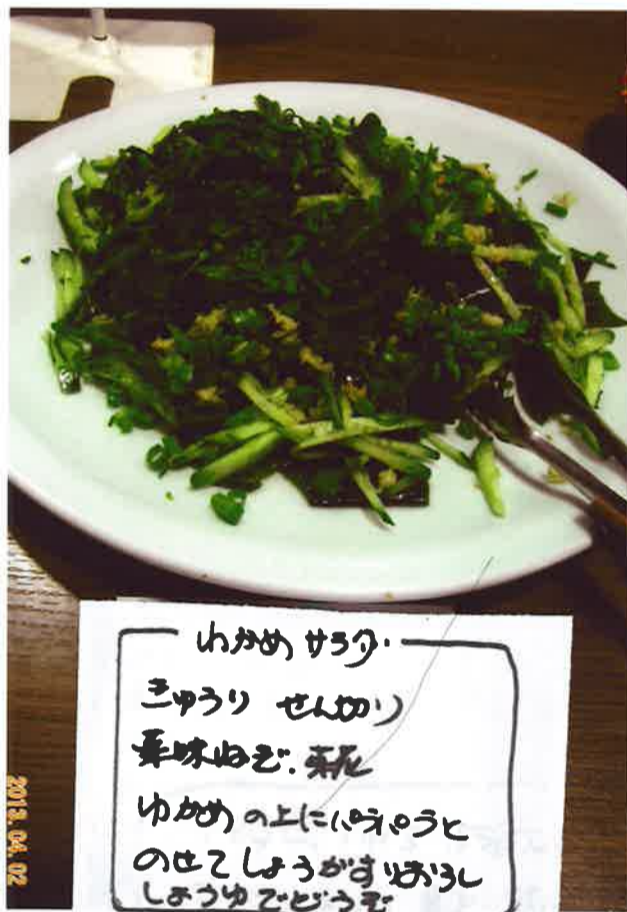 わかめサラダ
きゅうり せん切り
薬味ねぎ. 菜花
わかめの上にパラパラと
のせてしょうがすりおろし
しょうゆでどうぞ
2013.04.02